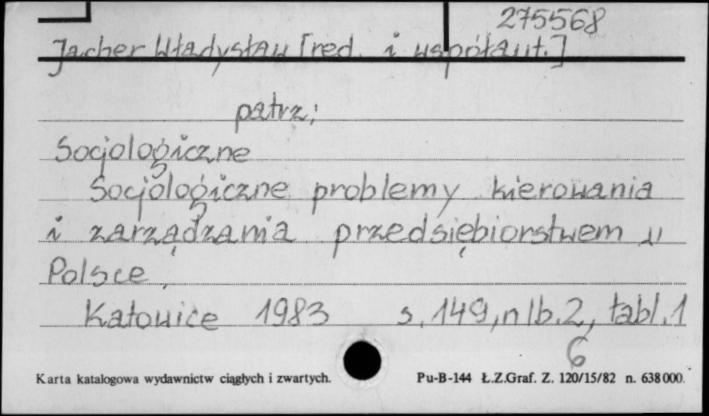 275568
Jacher Władysław [red. i współaut.]
patrz:
Socjologiczne
Socjologiczne problemy kierowania
i zarządzania przedsiębiorstwem w
Polsce.
Katowice 1983 s. 149, nlb. 2, tabl. 1
6
Karta katalogowa wydawnictw ciągłych i zwartych.
Pu-B-144 Ł.Z.Graf. Z. 120/15/82 n. 638000.